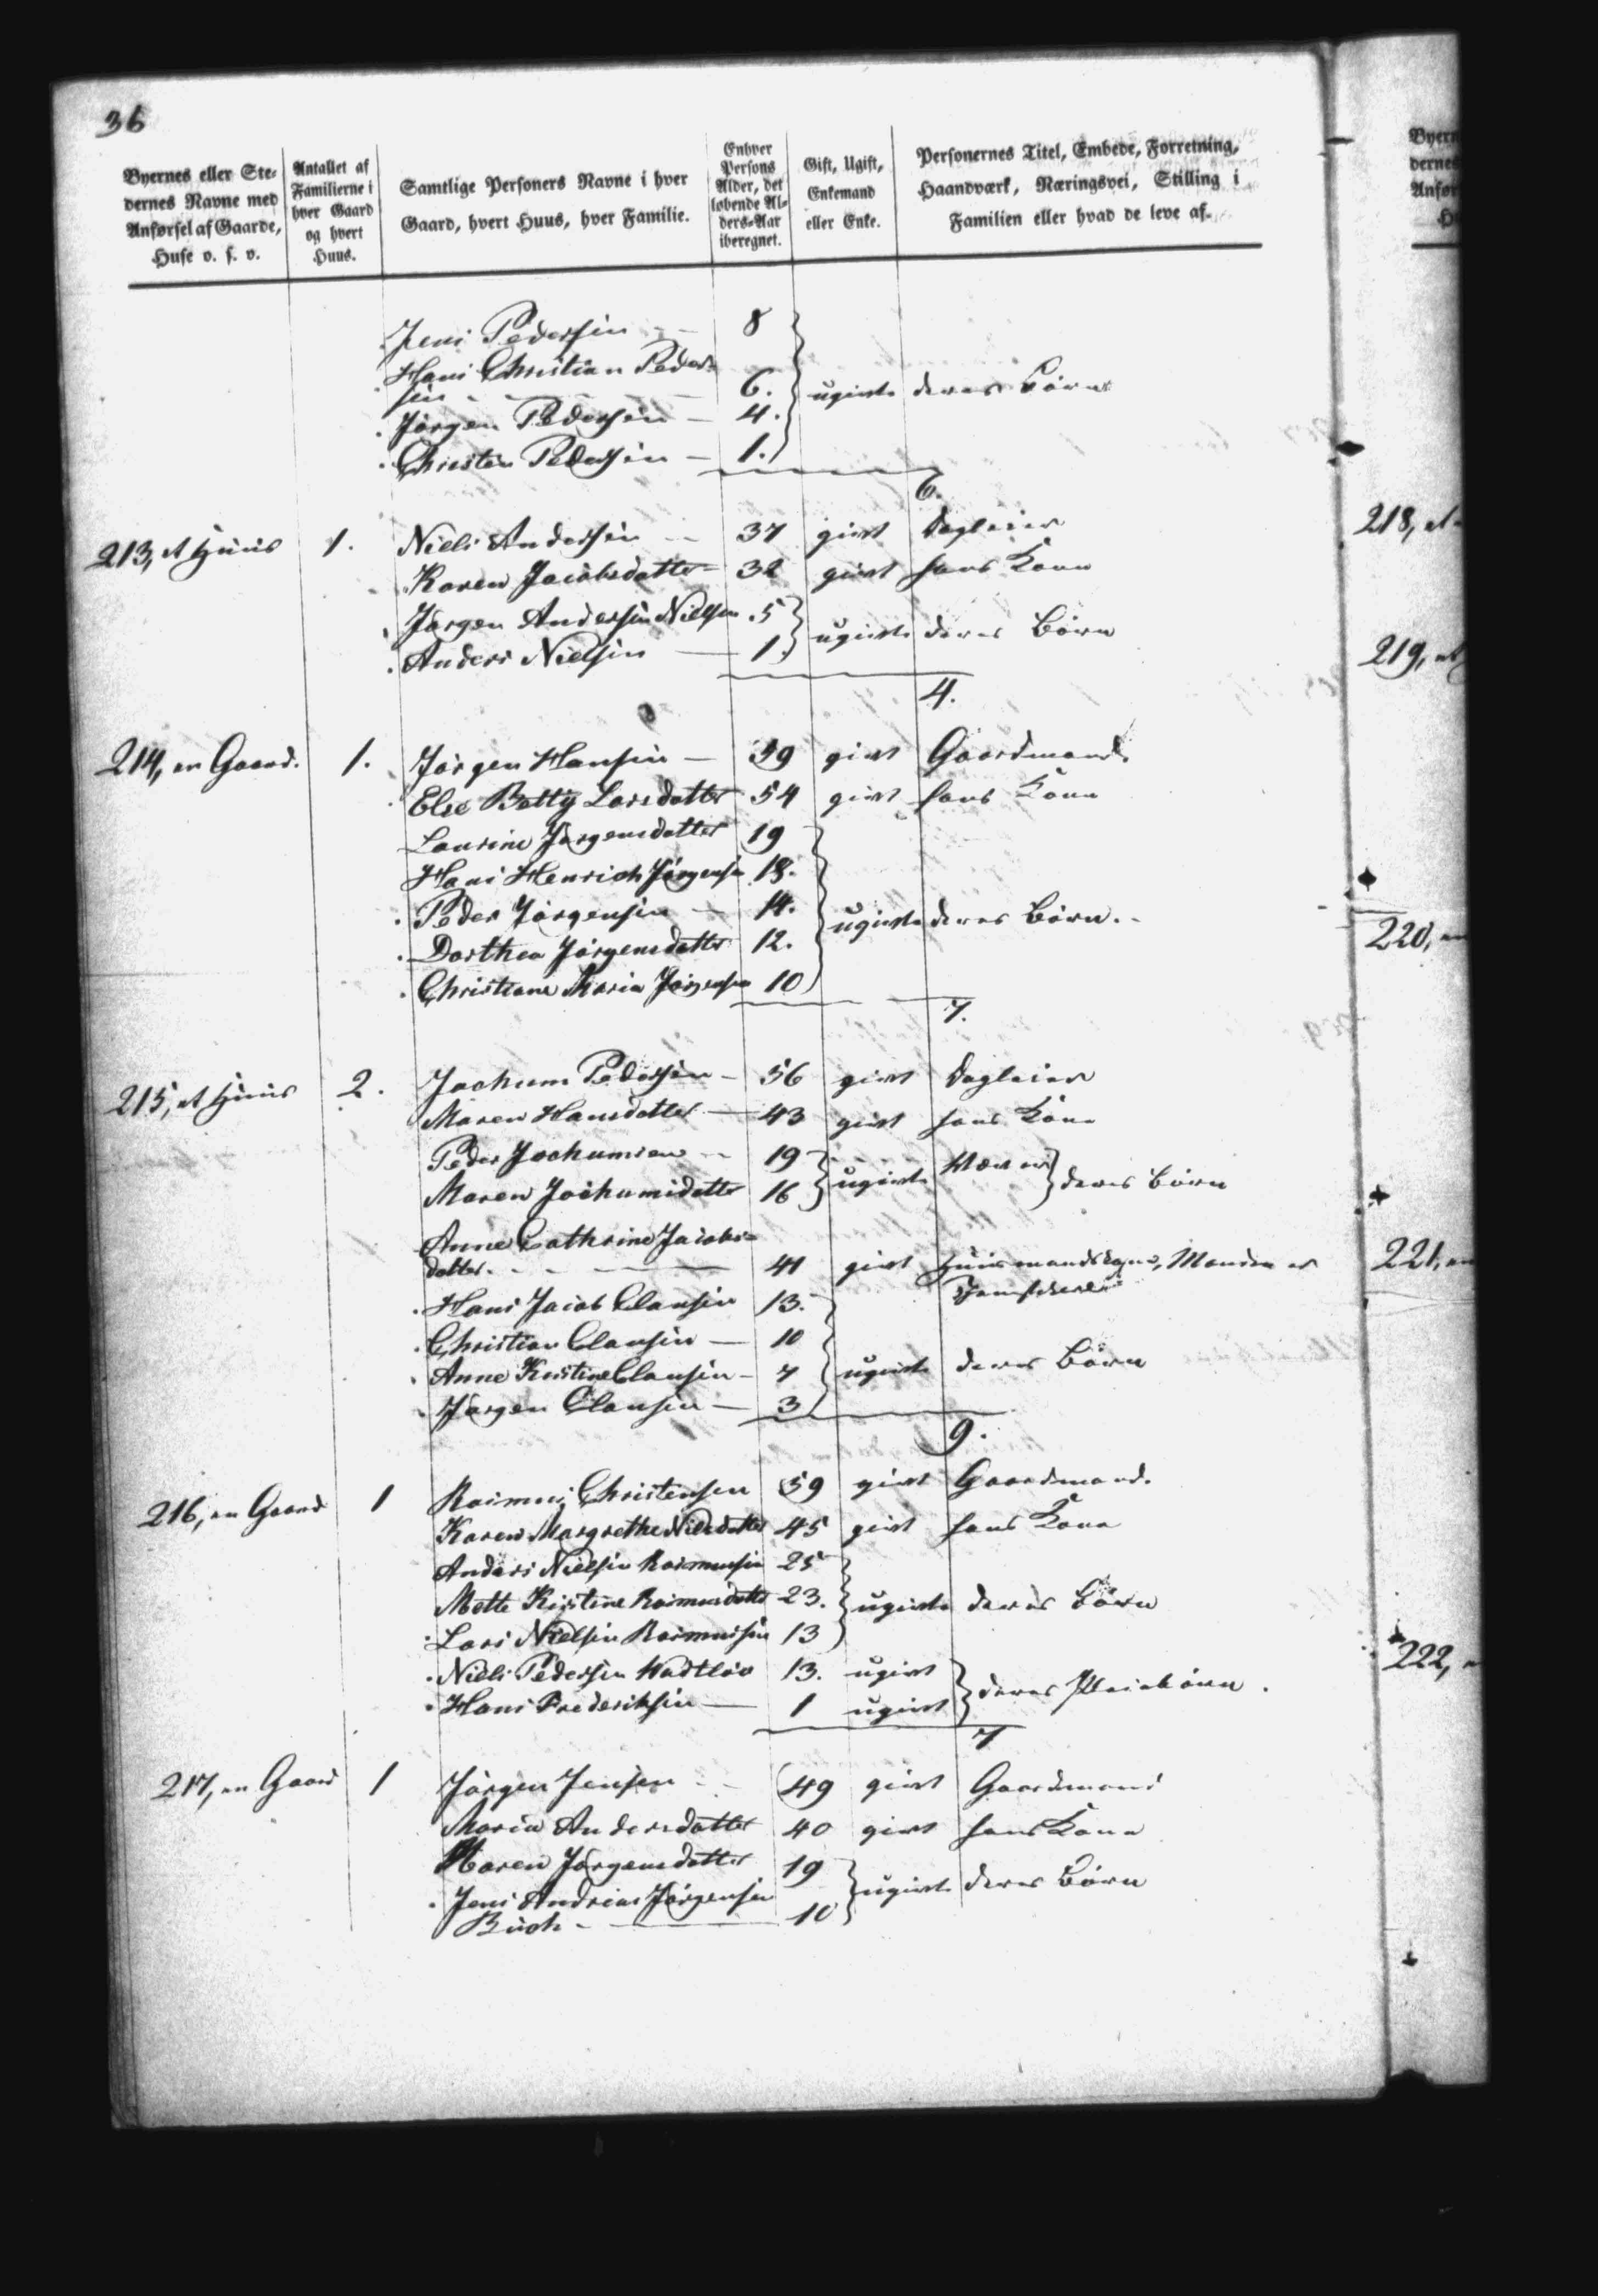 36
Byernes eller Ste-
dernes Navne med
Anførsel af Gaarde,
Huse o. s. v.
Antallet af
Familierne i
hver Gaard
og hvert
Huus.
Samtlige Personers Navne i hver
Gaard, hvert Huus, hver Familie.
Enhver
Persons
Alder, det
løbende Al-
ders-Aar
iberegnet.
Gift, Ugift,
Enkemand
eller Enke.
Personernes Titel, Embede, Forretning,
Haandværk, Næringsvei, Stilling i
Familien eller hvad de leve af.
Jens Pedersen 8
Hans Christian Peder-
sen 6. ugivte deres Börn
Jörgen Pedersen 4.
Christen Pedersen 1.
6.
213, et Huus 1. Niels Andersen 37 givt Dagleier
Karen Jacobsdatter 32 givt hans Kone
Jörgen Andersen Nielsen 5 ugivte deres Börn
Anders Nielsen 1.
4.
214, en Gaard. 1. Jörgen Hansen 59 givt Gaardmand
Else Bettÿ Larsdatter 54 givt hans Kone
Laurine Jörgensdatter 19
Hans Henrich Jörgensen 18.
Peder Jörgensen 14. ugivte deres Börn.
Dorthea Jörgensdatter 12.
Christiane Marie Jörgensen 10
7.
215, et Huus 2. Jochum Pedersen 56 givt Dagleier
Maren Hansdatter 43 givt hans Kone
Peder Jochumsen 19 ugivte deres Börn
Maren Jochumsdatter 16
Anne Cathrine Jacobs-
datter 41 givt Huusmandskone, Manden er
Hans Jacob Clausen 13.
Christian Clausen 10
Anne Kirstine Clausen 7 ugivte deres Börn
Jörgen Clausen 3
9.
216, en Gaard 1 Rasmus Christensen 59 givt Gaardmand.
Karen Margrethe Nielsdatter 45 givt hans Kone
Anders Nielsen Rasmussen 25
Mette Kirstine Rasmusdatter 23. ugivte deres Börn
Lars Nielsen Rasmussen 13
Niels Pedersen 13. ugivt deres Pleiebörn.
Hans Frederiksen 1 ugivt
7
217, en Gaard 1 Jörgen Jensen 49 givt Gaardmand
Marie Andersdatter 40 givt hans Kone
Maren Jörgensdatter 19 ugivte deres Börn
Jens Andreas Jörgensen
Buch 10
Byern
dernes
Anfør
H
218, et
219, et
220, en
221, en
222,